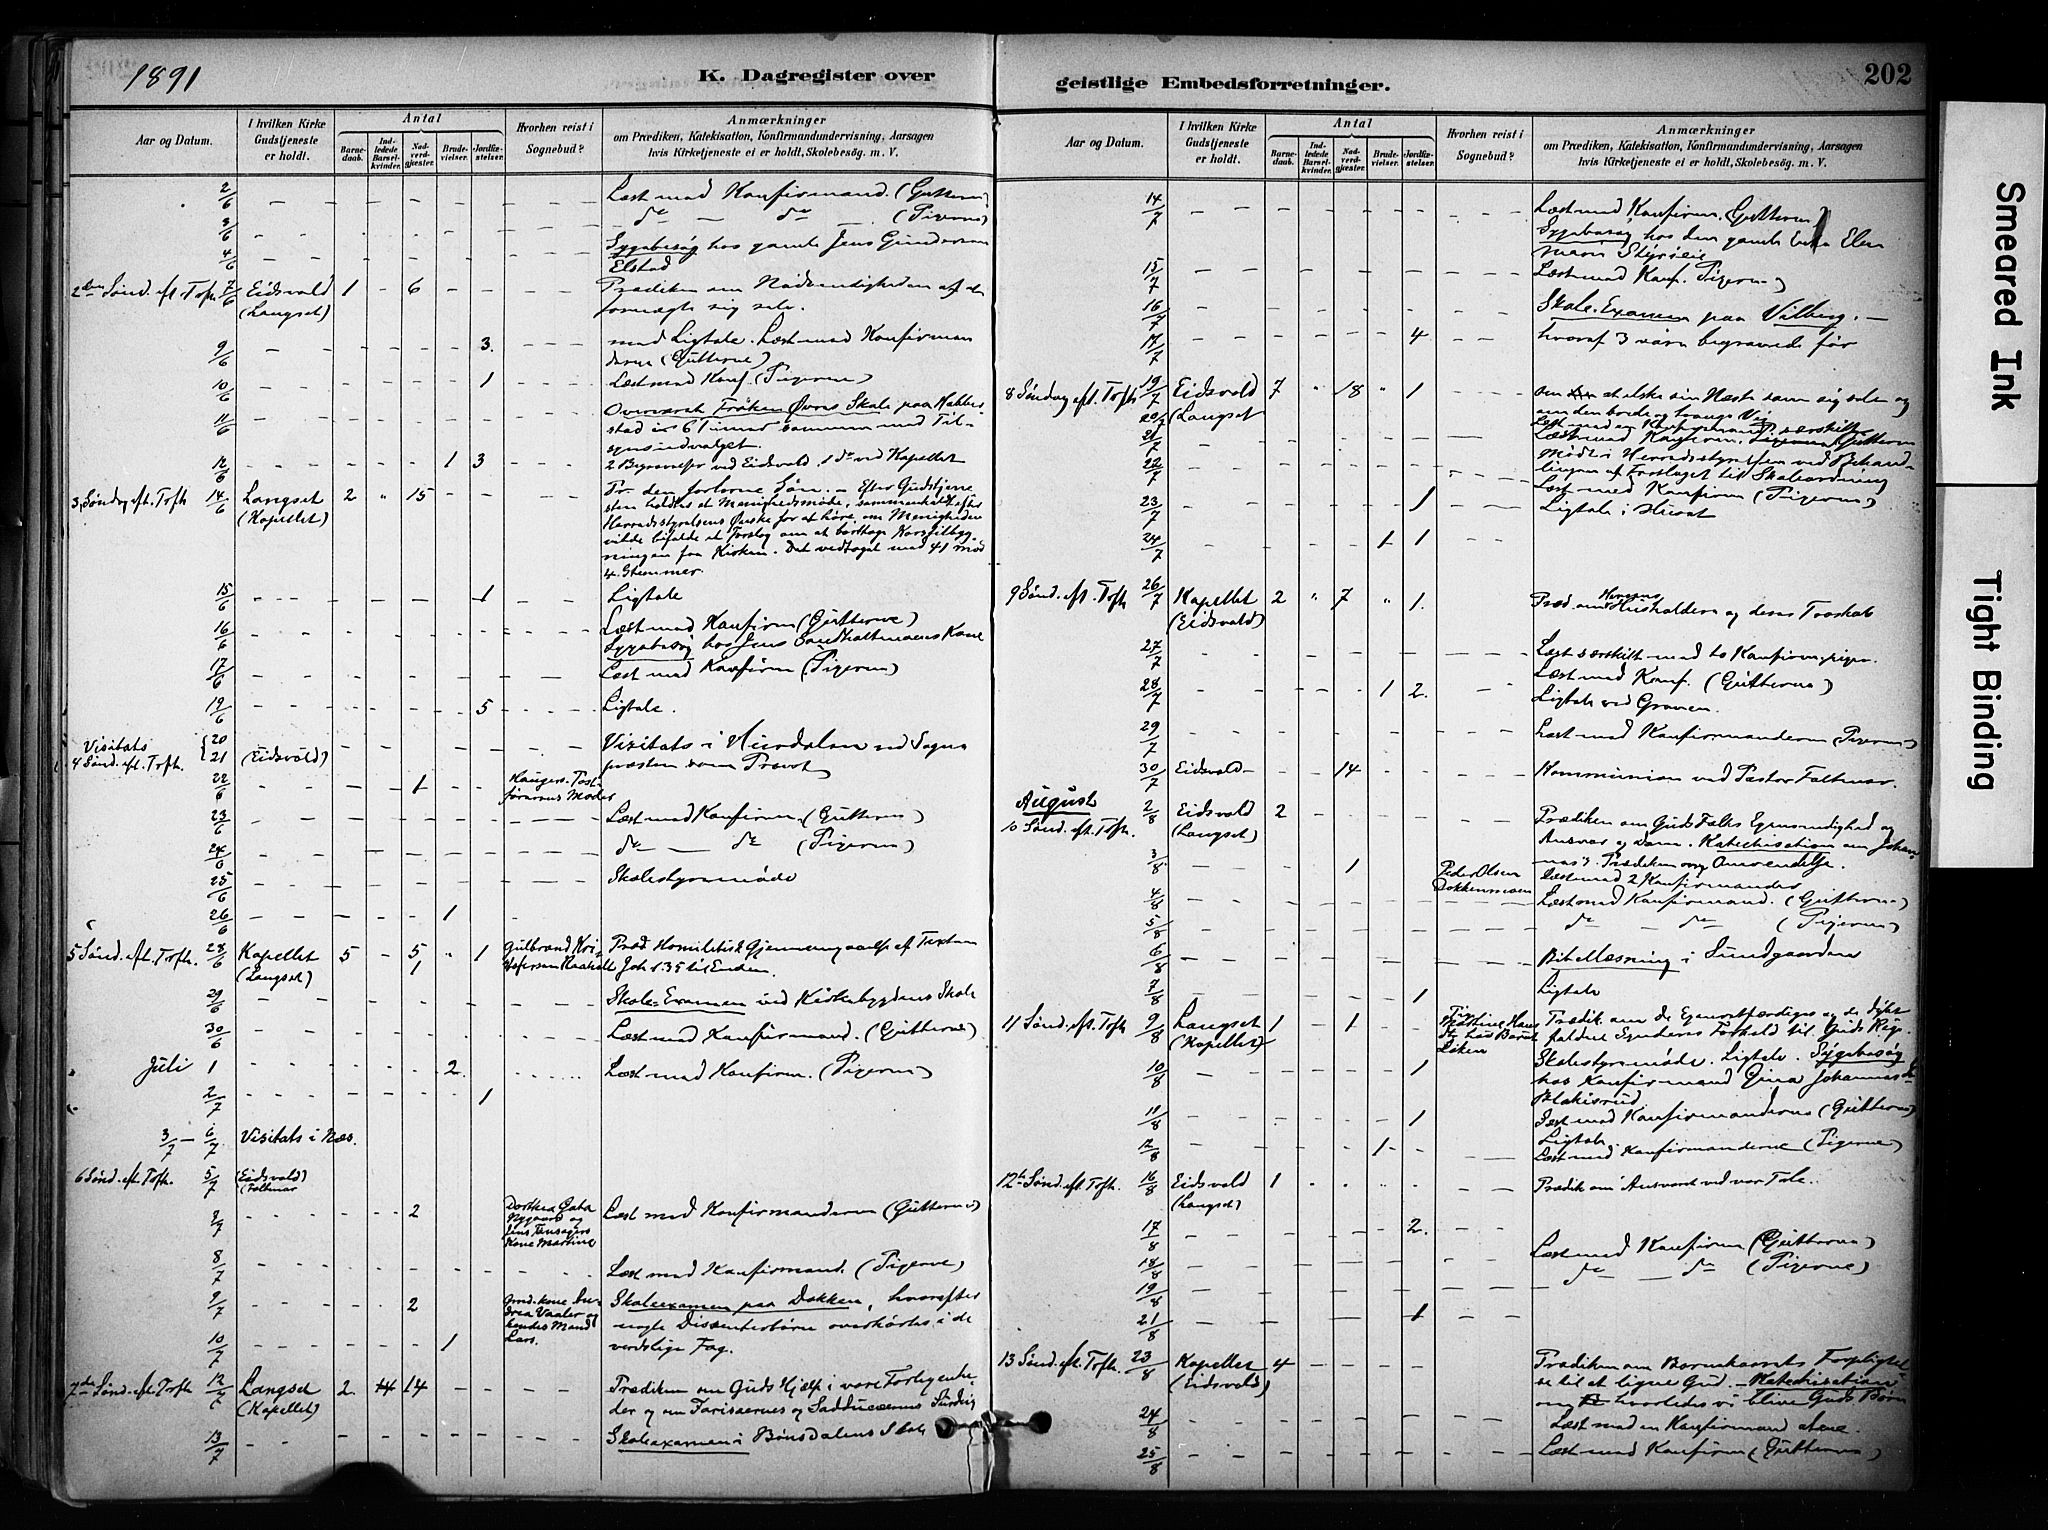 1891
K. Dagregister over
Aar og Datum.
I hvilken Kirke Gudstjeneste er holdt.
Antal
Barnedaab.
Indledede Barselkvinder.
Nadverdgjester.
Brudevielser.
Jordfæstelser.
Hvorhen reist i Sognebud?
Anmærkninger
om Prædiken, Katekisation, Konfirmandundervisning, Aarsagen
hvis Kirketjeneste ei er holdt, Skolebesög. m. V.
2/6 Læst med Konfirmand. (Gutterne)
3/6 do — do — (Pigerne)
4/6 Sygebesøg hos gamle Jens Gundersen
Elstad
2den Sønd. eft. Trefh. 7/6 Eidsvold 1 - 6 Prædiken om Nødvendigheden af at
(Langset) fornægte sig selv.
9/6 3. med Ligtale. Læst med Konfirman
derne (Gutterne)
10/6 1 Læst med Konf. (Pigerne)
11/6 Overværet Frøken Øvres Skole paa Habber-
stad i 6 Timer sammen med Til-
synsudvalget.
12/6 1 3 2 Begravelser ved Eidsvold, 1 do ved Kapellet
3. Søndag eft. Trefh 14/6 Langset 2 " 15 Pr. den forlorne Søn. - Efter Gudstjene
(Kapellet) sten holdtes et Menighedsmøde, sammenkaldt efter
Herredsstyrelsens Ønske for at høre om Menigheden
vilde bifalde et Forslag om at borttage Korstilbyg-
ningen fra Kirken. Det vedtoges med 41 mod
4 Stemmer.
15/6 1 Ligtale
16/6 Læst med Konfirm (Gutterne)
Sygebesøg hos Jens Sandholtmoens Kone
17/6 Læst med Konfirm (Pigerne)
19/6 5 Ligtale.
Visitats 20 Visitats i Hurdalen ved Sogne
4 Sønd. eft. Trefh. 21 (Eidsvold) præsten som Provst
22/6 1 Moder
23/6 Læst med Konfirm. (Gutterne)
24/6 do — do (Pigerne)
25/6 Skolestyremøde
26/6 1
5 Sønd. eft. Trefh. 28/6 Kapellet 5 - 5 " 1 Gulbrand Kri- Præd Homiletisk Gjennemgaaelse af Texten
(Langset) 1 Joh 1.35 til Enden.
29/6 Skole-Examen ved Kirkebygdens Skole
30/6 Læst med Konfirmand. (Gutterne)
Juli 1 2. Læst med Konfirm. (Pigerne)
2/7 1
3/7 — 6/7 Visitats i Næs.
6 Sønd. eft. Trefh. 5/7 (Eidsvold)
(Foltmar
2 Læst med Konfirmanderne (Gutterne)
Nygaard og
Kone Martine
8/7 Læst med Konfirmand. (Pigerne)
9/7 2 Skoleexamen paa Dokken, hvorefter
Vaaler og nogle Dissenterbørn overhørtes i de
hendes Mand
Lars.
10/7 1 verdslige Fag.
7de Sønd. eft. Trefh 12/7 Langset 2. 14 14 Prædiken om Guds Hjælp i vore Forlegenhe-
(Kapellet) der og om Farisæernes og Sadducæernes Surdeig
13/7 Skoleexamen i Bønsdalens Skole
geistlige Embedsforretninger.
202
Aar og Datum.
I hvilken Kirke Gudstjeneste er holdt.
Antal
Barnedaab.
Indledede Barselkvinder.
Nadverdgjester.
Brudevielser.
Jordfæstelser.
Hvorhen reist i Sognebud?
Anmærkninger
om Prædiken, Katekisation, Konfirmandundervisning, Aarsagen
hvis Kirketjeneste ei er holdt, Skolebesög. m. V.
14/7 Læst med Konfirm. (Gutterne)
Sygebesøg hos den gamle Enke Elen
Marie
15/7 Læst med Konf. Pigerne)
16/7 Skole-Examen paa Vilberg. —
17/7 4 hvoraf 3 vare begravede før
8 Søndag eft. Trefh 19/7 Eidsvold 7 " 18 " 1 om at elske sin Næste som sig selv og
(Langset om den brede og trange Vei
21/7 Læst med Konfirm. (Gutterne
22/7 Møde i Herredsstyrelsen ved Behand-
lingen af Forslaget til Skoleordning
Læst med Konfirm (Pigerne)
23/7 1 Ligtale i Huset
24/7 1 1
9 Sønd. eft. Trefh 26/7 Kapellet 2 " 7 " 1. Præd om Herrens Husholdere og deres Troskab
(Eidsvold)
27/7 Læst særskilt med to Konfirm.piger.
28/7 1 2. Læst med Konf. (Gutterne)
Ligtale ved Graven.
29/7 Læst med Konfirmanderne (Pigerne)
30/7 Eidsvold- 14 Kommunion ved Pastor Foltmar.
August 2/8 Eidsvold 2 Prædiken om Guds Folks og
10 Sønd. eft. Trefh. (Langset) Ansvar og Dom. Katechisation om Johan-
nes's Prædiken om Omvendelse.
3/8 1 Peder Olsen Læst med 2 Konfirmander
Dokkenmoen
4/8 Læst med Konfirmand. (Gutterne)
5/8 do — do (Pigerne)
6/8 Bibellæsning i Sundgaarden
7/8 1 Ligtale
11 Sønd. eft. Trefh 9/8 Langset 1 - 1 Prædik. om de Egenretfærdiges og de dybt
(Kapellet) faldne Synderes Forhold til Guds Rige.
10/8 1 Skolestyremøde. Ligtale. Sygebesøg
hos Konfirmand Gina Johannesd
11/8 1 Læst med Konfirmanderne (Gutterne)
Ligtale
12/8 1 Læst med Konfirmanderne (Pigerne)
12te Sønd. eft. Trefh. 16/8 Eidsvold 1 Prædik om Ansvaret ved vor Tale.
(Langset)
17/8 2.
18/8 Læst med Konfirm (Gutterne)
19/8 do — do (Pigerne)
21/8 1
13 Sønd. eft. Trefh. 23/8 Kapellet 4 Prædiken om Børnekaarets Forpligtel
(Eidsvold) se til at ligne Gud. - Katechisation
om hvorledes vi blive Guds Børn
24/8 Læst med en Konfirmand alene.
25/8 Læst med Konfirm (Gutterne)
Smeared Ink
Tight Binding